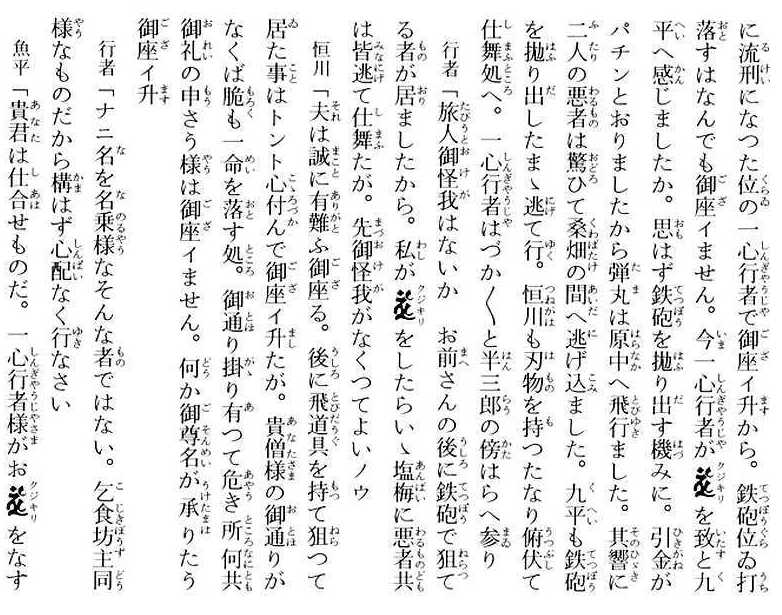 に流刑になつた位の一心行者で御座イ升から。鉄砲位ゐ打
落すはなんでも御座イません。今一心行者が を致と九
平へ感じましたか。思はず鉄砲を拋り出す機みに。引金が
パチンとおりましたから弾丸は原中へ飛行ました。其響に
二人の悪者は驚ひて桑畑の間へ逃げ込ました。九平も鉄砲
を拋り出したまゝ逃て行。恒川も刃物を持つたなり俯伏て
仕舞処へ。一心行者はづか〱と半三郎の傍はらへ参り
行者「旅人御怪我はないか　お前さんの後に鉄砲で狙て
る者が居ましたから。私が をしたらいゝ塩梅に悪者共
は皆逃て仕舞たが。先御怪我がなくつてよいノウ
恒川「夫は誠に有難ふ御座る。後に飛道具を持て狙つて
居た事はトント心付んで御座イ升たが。貴僧様の御通りが
なくば脆も一命を落す処。御通り掛り有つて危き所何共
御礼の申さう様は御座イません。何か御尊名が承りたう
御座イ升
行者「ナニ名を名乗様なそんな者ではない。乞食坊主同
様なものだから構はず心配なく行なさい
魚平「貴君は仕合せものだ。一心行者様がお をなす